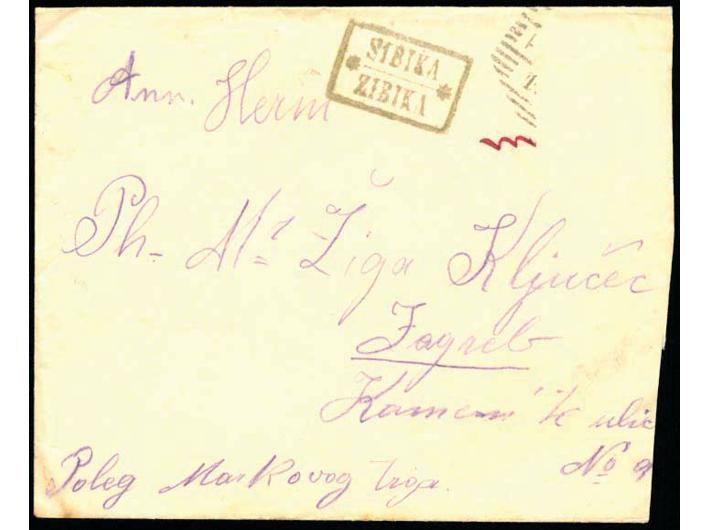 SIBIKA
ZIBIKA
Ann. Herrn
Ph. Mr. Žiga Ključec
Zagreb
ulic
No 9
Poleg Markovog trga.